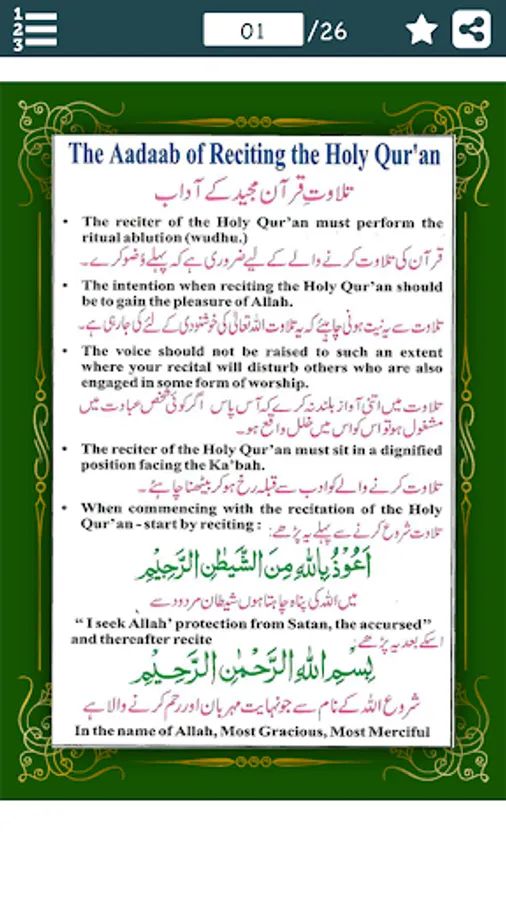 1
2
3
01 /26
The Aadaab of Reciting the Holy Qur'an
تلاوتِ قرآن مجید کے آداب
• The reciter of the Holy Qur'an must perform the
ritual ablution (wudhu.)
قرآن کی تلاوت کرنے والے کے لیے ضروری ہے کہ پہلے وُضو کرے۔
• The intention when reciting the Holy Qur'an should
be to gain the pleasure of Allah.
تلاوت سے یہ نیت ہونی چاہئیے کہ یہ تلاوت اللہ تعالٰی کی خوشنودی کے لئے کی جارہی ہے۔
• The voice should not be raised to such an extent
where your recital will disturb others who are also
engaged in some form of worship.
تلاوت میں اتنی آواز بلند نہ کرے کہ آس پاس اگر کوئی شخص عبادت میں
مشغول ہو تو اس کو اس میں خلل واقع ہو۔
• The reciter of the Holy Qur'an must sit in a dignified
position facing the Ka'bah.
تلاوت کرنے والے کو ادب سے قبلہ رخ ہو کر بیٹھنا چاہئے۔
• When commencing with the recitation of the Holy
Qur'an - start by reciting : تلاوت شروع کرنے سے پہلے یہ پڑھے:
اَعُوْذُ بِاللّٰهِ مِنَ الشَّيْطٰنِ الرَّجِيْمِ
میں اللہ کی پناہ چاہتا ہوں شیطان مردود سے
" I seek Allah' protection from Satan, the accursed"
and thereafter recite اسکے بعد یہ پڑھے:
بِسْمِ اللّٰهِ الرَّحْمٰنِ الرَّحِيْمِ
شروع اللہ کے نام سے جو نہایت مہربان اور رحم کرنے والا ہے
In the name of Allah, Most Gracious, Most Merciful